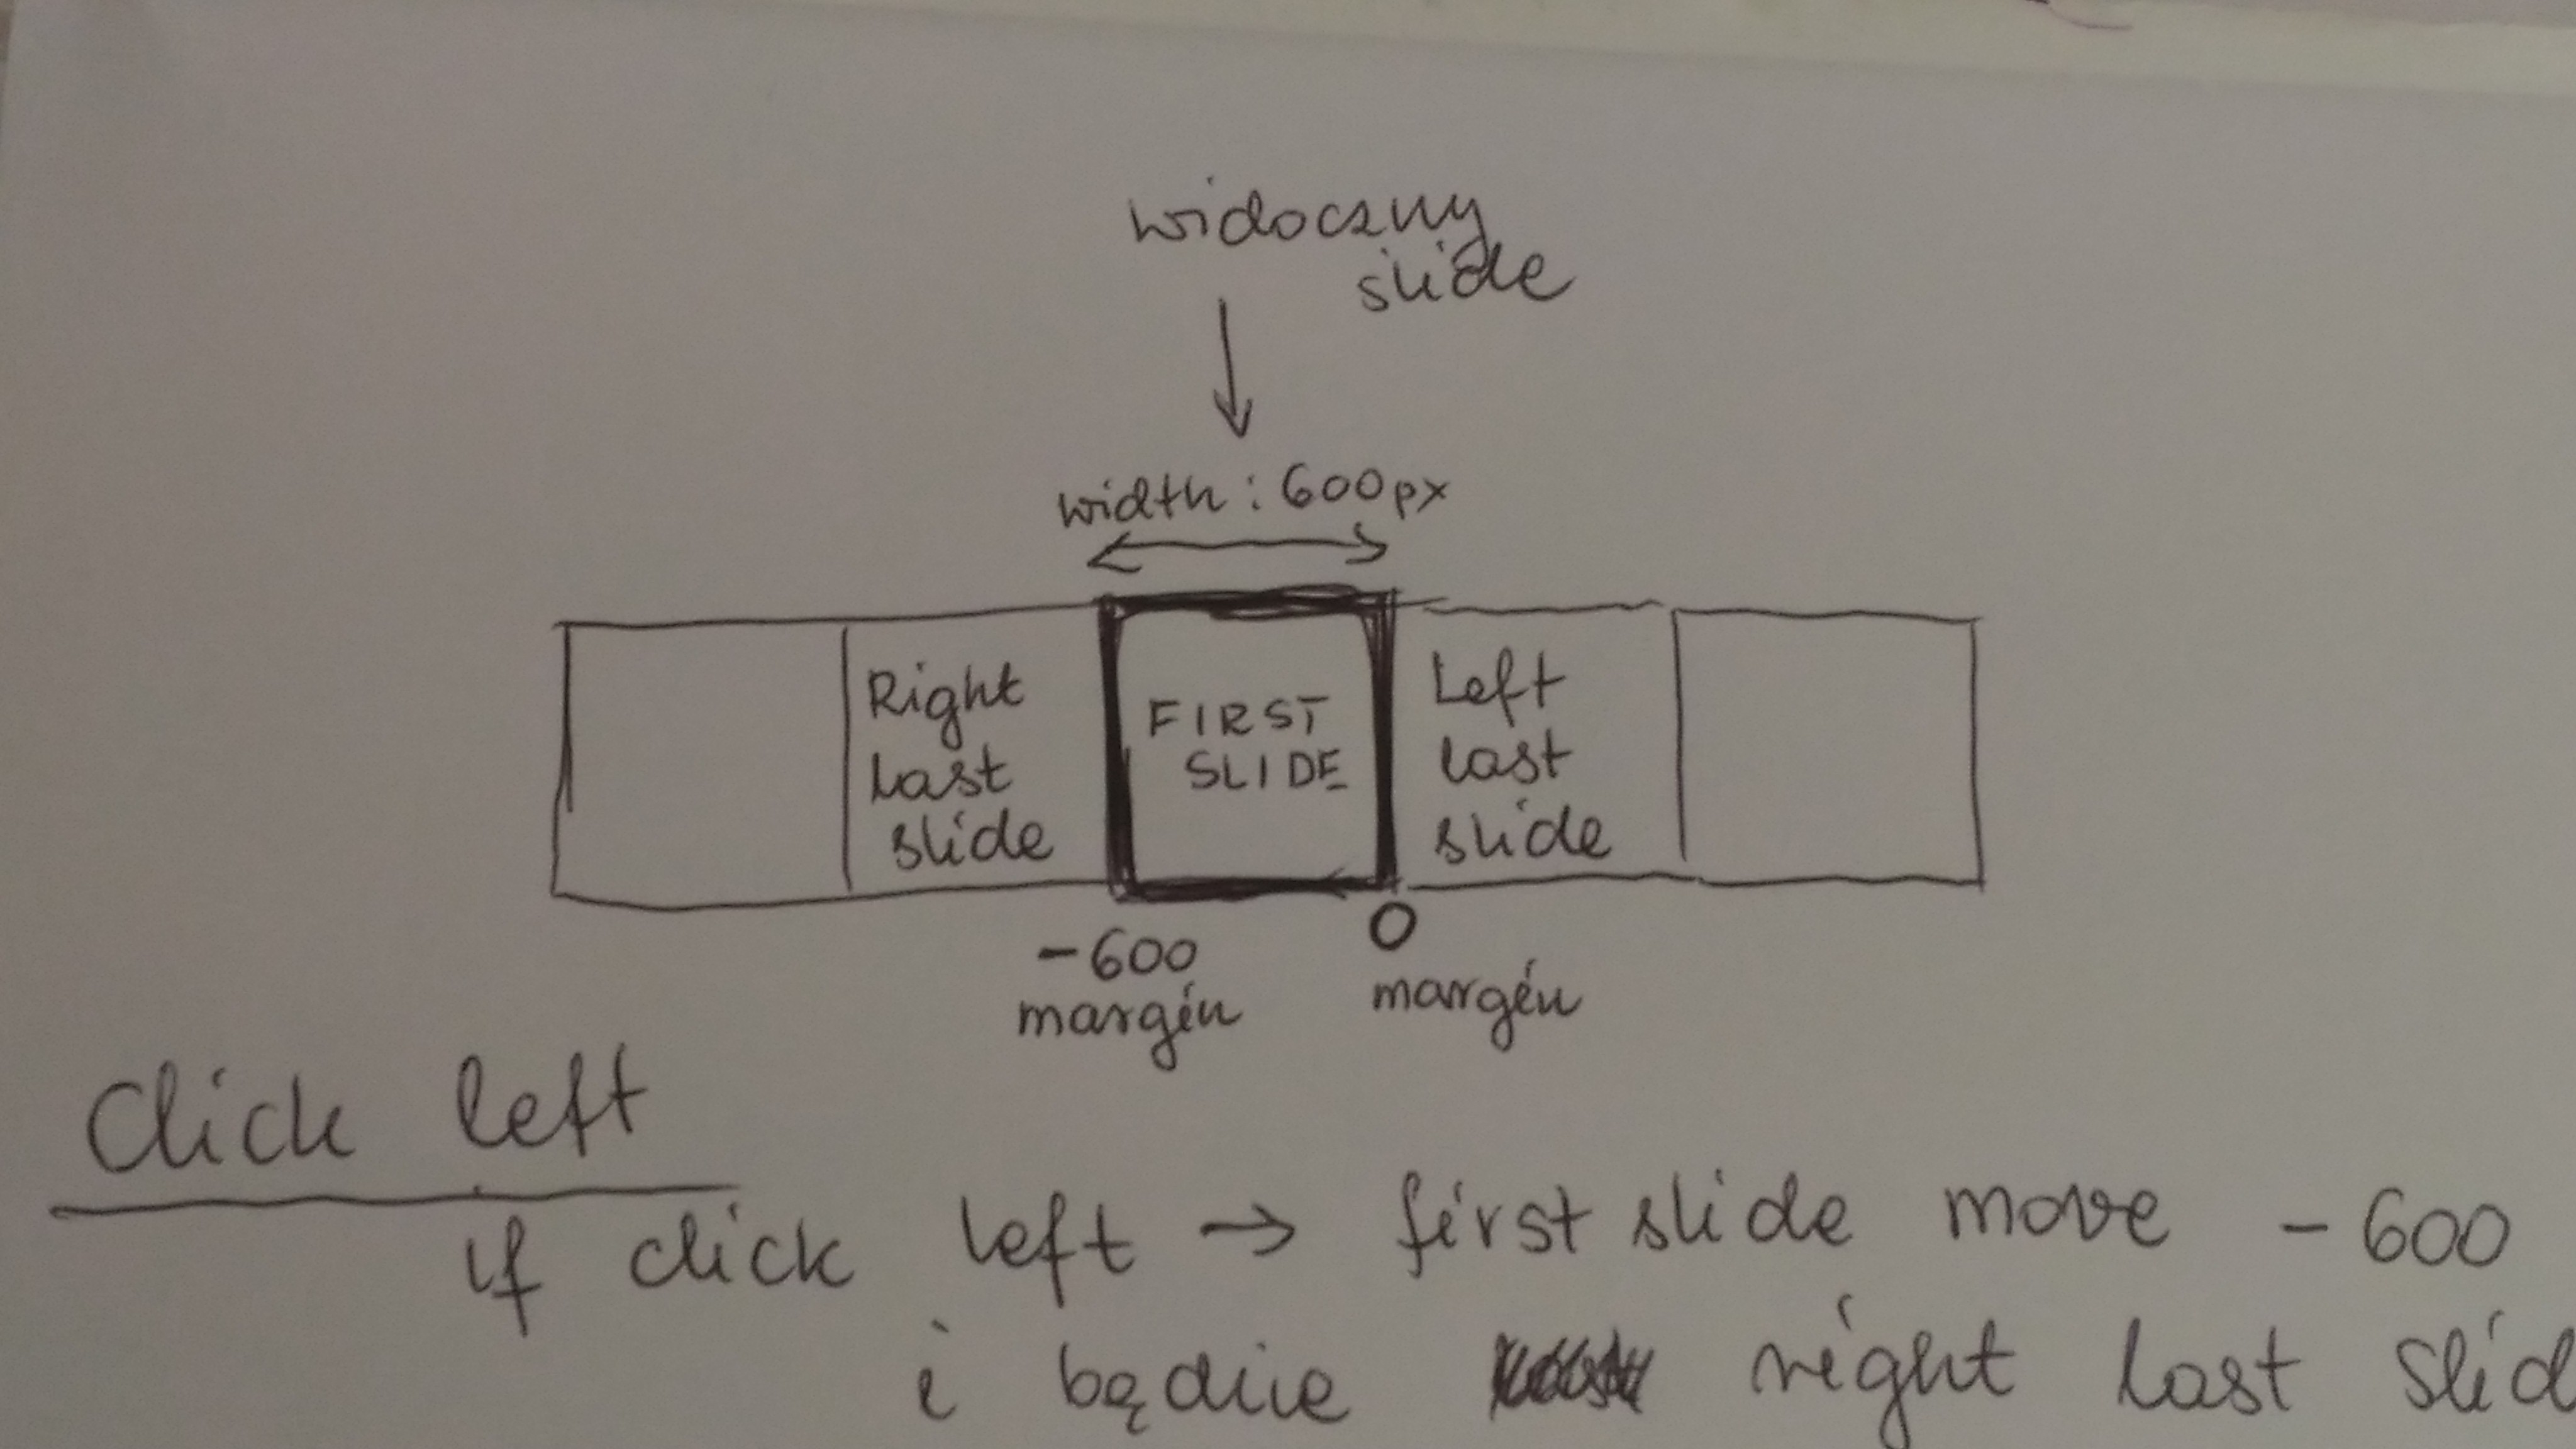 widoczny
slide
width: 600px
Right
Last
slide
FIRST
SLIDE
Left
last
slide
-600
margin
0
margin
Click left
if click left → first slide move -600
i będzie right last slid